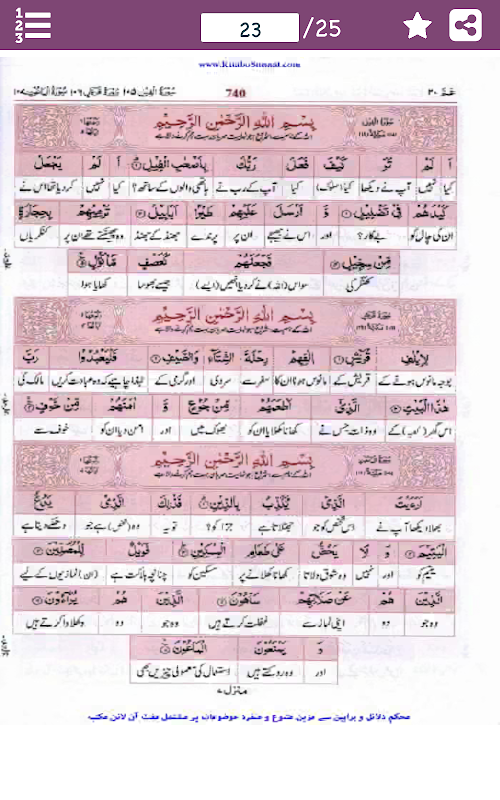 23 /25
www.KitaboSunnat.com
سورة الفيل ١٠٥ سورة قريش ١٠٦ سورة الماعون ١٠٧ 740 عم ٣٠
بِسْمِ اللهِ الرَّحْمٰنِ الرَّحِيْمِ
اَ لَمْ تَرَ كَيْفَ فَعَلَ رَبُّكَ بِاَصْحٰبِ الْفِيْلِ اَ لَمْ يَجْعَلْ
کیا نہیں آپ نے دیکھا کیا (سلوک) کیا آپ کے رب نے ہاتھی والوں کے ساتھ؟ کیا نہیں کر دیا تھا اس نے
كَيْدَهُمْ فِيْ تَضْلِيْلٍ وَّ اَرْسَلَ عَلَيْهِمْ طَيْرًا اَبَابِيْلَ تَرْمِيْهِمْ بِحِجَارَةٍ
ان کی چال کو بے کار؟ اور اس نے بھیجے ان پر پرندے جھنڈ کے جھنڈ وہ پھینکتے تھے ان پر کنکریاں
مِّنْ سِجِّيْلٍ فَجَعَلَهُمْ كَعَصْفٍ مَّاْكُوْلٍ
کھنگر کی سو اس (اللہ) نے کر دیا انھیں (ایسے) جیسے بھوسا کھایا ہوا
بِسْمِ اللهِ الرَّحْمٰنِ الرَّحِيْمِ
لِاِيْلٰفِ قُرَيْشٍ اٖلٰفِهِمْ رِحْلَةَ الشِّتَآءِ وَالصَّيْفِ فَلْيَعْبُدُوْا رَبَّ
بوجہ مانوس ہونے کے قریش کے مانوس ہونا ان کا سفر سے سردی اور گرمی کے لہٰذا چاہیے کہ وہ عبادت کریں مالک کی
هٰذَا الْبَيْتِ الَّذِيْٓ اَطْعَمَهُمْ مِّنْ جُوْعٍ وَّ اٰمَنَهُمْ مِّنْ خَوْفٍ
اس گھر (کعبہ) کے وہ ذات جس نے کھانا کھلایا ان کو بھوک میں اور امن دیا ان کو خوف سے
بِسْمِ اللهِ الرَّحْمٰنِ الرَّحِيْمِ
اَرَءَيْتَ الَّذِيْ يُكَذِّبُ بِالدِّيْنِ فَذٰلِكَ الَّذِيْ يَدُعُّ
بھلا دیکھا آپ نے اس شخص کو جو جھٹلاتا ہے جزا کو؟ تو یہ وہ (شخص) ہے جو دھکے دیتا ہے
الْيَتِيْمَ وَ لَا يَحُضُّ عَلٰى طَعَامِ الْمِسْكِيْنِ فَوَيْلٌ لِّلْمُصَلِّيْنَ
یتیم کو اور نہیں وہ شوق دلاتا کھانا کھلانے پر مسکین کو چنانچہ ہلاکت ہے (ان) نمازیوں کے لیے
الَّذِيْنَ هُمْ عَنْ صَلَاتِهِمْ سَاهُوْنَ الَّذِيْنَ هُمْ يُرَآءُوْنَ
وہ جو وہ اپنی نماز سے غفلت کرتے ہیں وہ جو وہ دکھلاوا کرتے ہیں
وَ يَمْنَعُوْنَ الْمَاعُوْنَ
اور وہ روکتے ہیں استعمال کی معمولی چیزیں بھی
منزل ٧
محکم دلائل و براہین سے مزین متنوع و منفرد موضوعات پر مشتمل مفت آن لائن مکتبہ